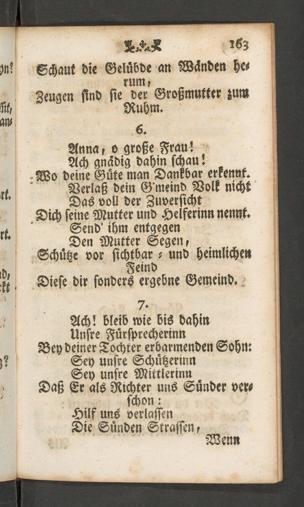 163
Schaut die Gelübde an Wänden he-
rum,
Zeugen sind sie der Großmutter zum
Ruhm.
6.
Anna, o große Frau!
Ach gnädig dahin schau!
Wo deine Güte man Dankbar erkennt.
Verlaß dein G'meind Volk nicht
Das voll der Zuversicht
Dich seine Mutter und Helferinn nennt.
Send' ihm entgegen
Den Mutter Segen,
Schütze vor sichtbar- und heimlichen
Feind
Diese dir sonders ergebne Gemeind.
7.
Ach! bleib wie bis dahin
Unsre Fürsprecherinn
Bey deiner Tochter erbarmenden Sohn:
Sey unsre Schützerinn
Sey unsre Mittlerinn
Daß Er als Richter uns Sünder ver-
schon:
Hilf uns verlassen
Die Sünden Strassen,
Wenn